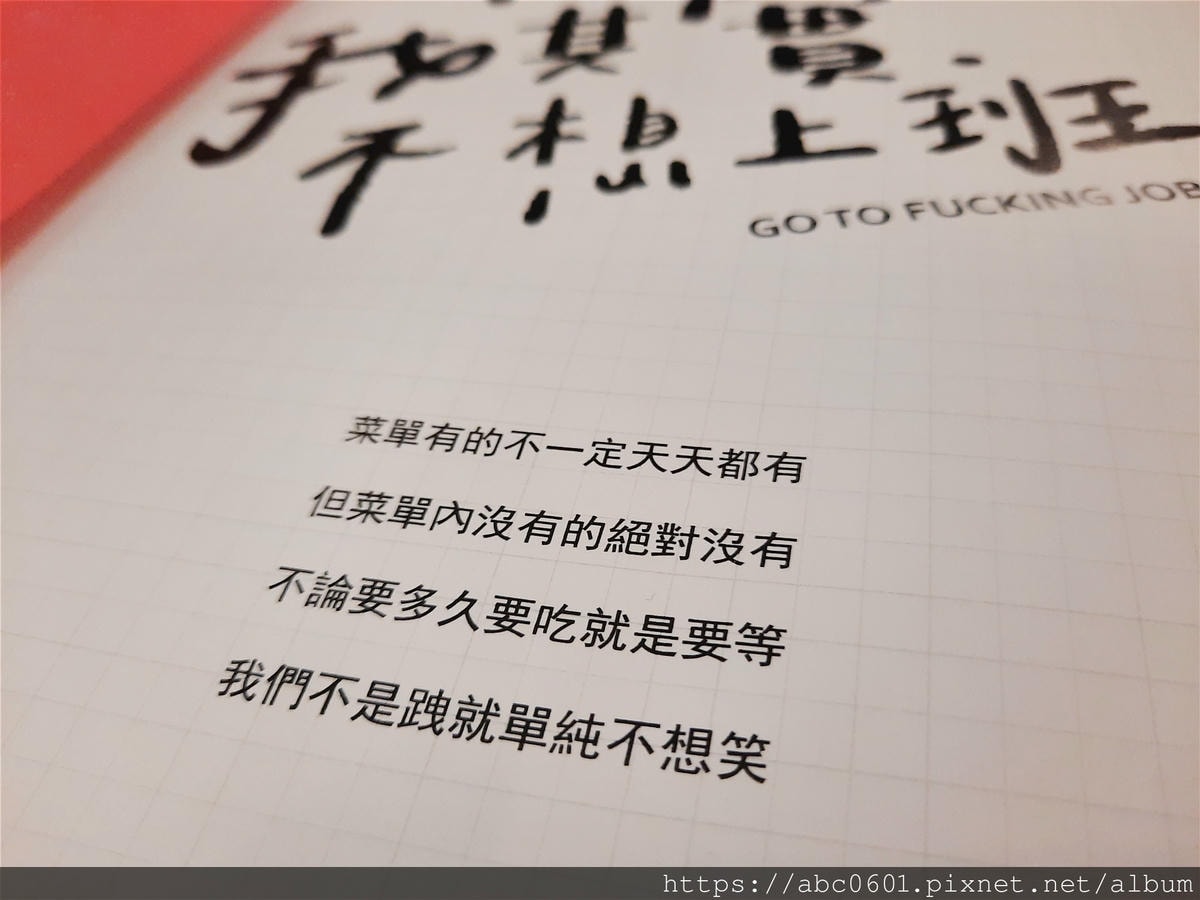 我其實
不想上班
GO TO FUCKING JOB
菜單有的不一定天天都有
但菜單內沒有的絕對沒有
不論要多久要吃就是要等
我們不是跩就單純不想笑
https://abc0601.pixnet.net/album